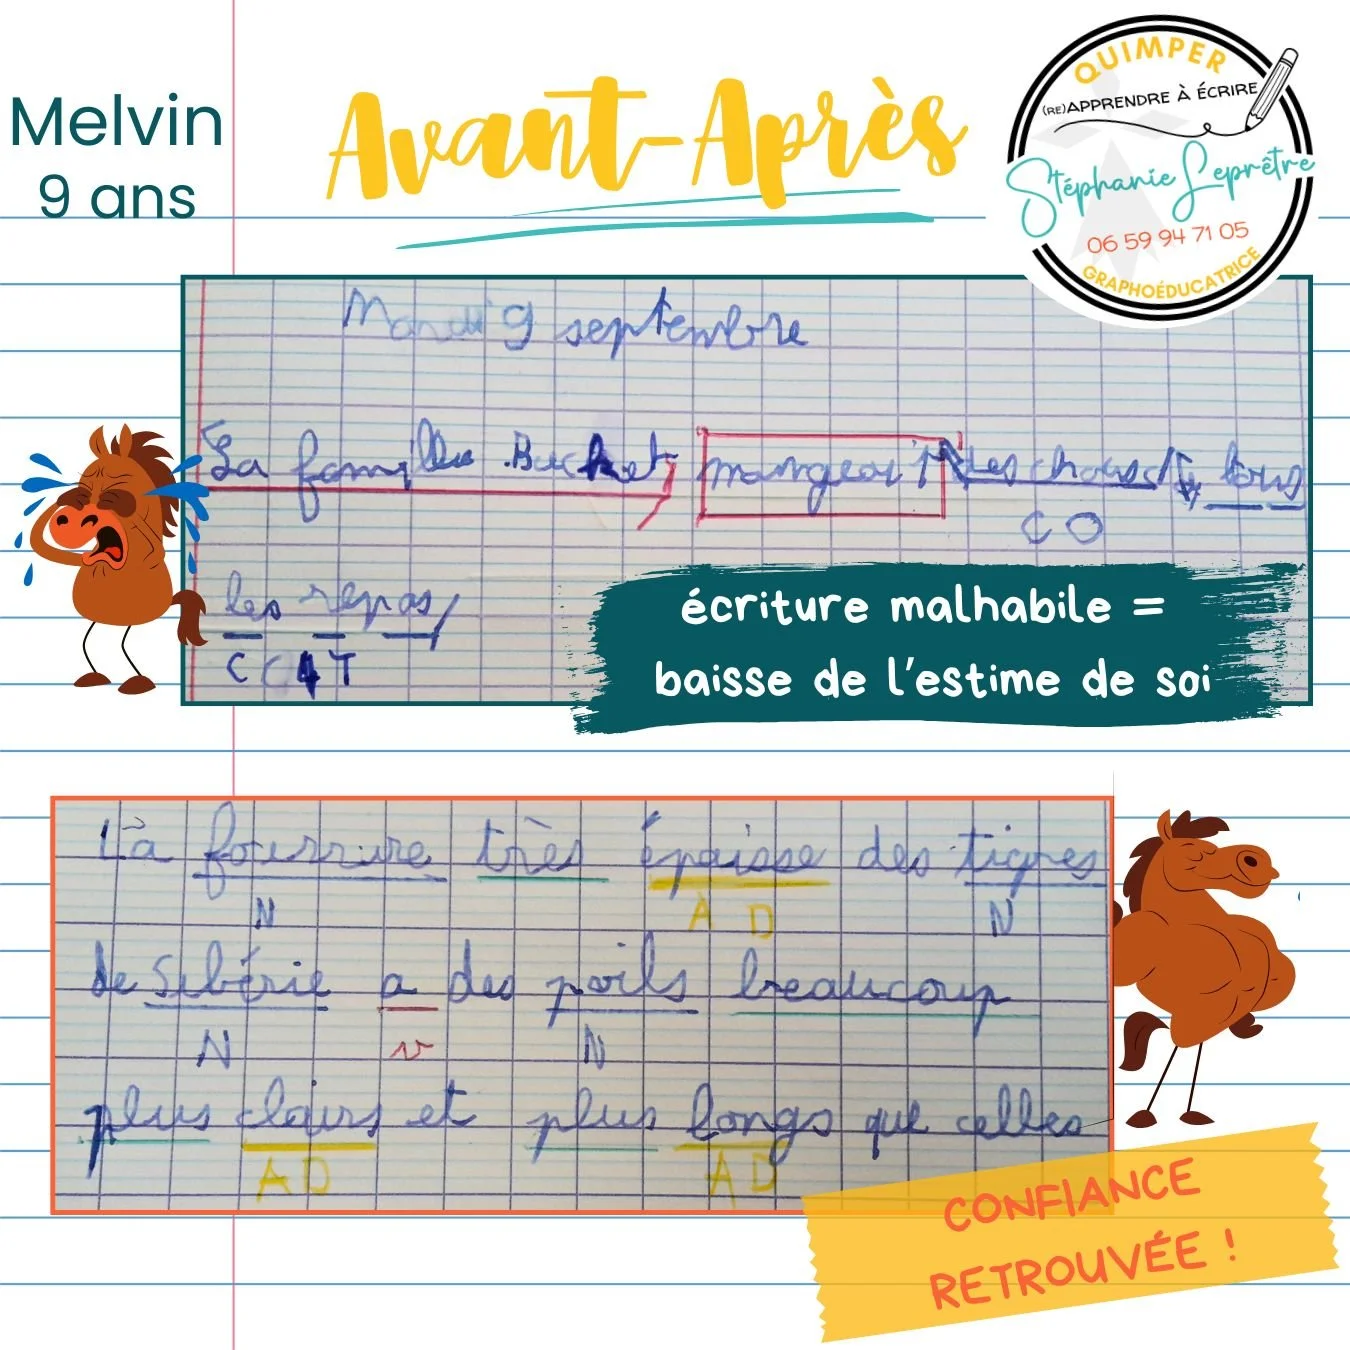 Melvin
9 ans
Avant-Après
QUIMPER
(RE)APPRENDRE À ÉCRIRE
Stéphanie Leprêtre
06 59 94 71 05
GRAPHOÉDUCATRICE
Mardi 9 septembre
La famille Bucket mangeait des choux tous
C O
les repas
C C 4 T
écriture malhabile =
baisse de l'estime de soi
La fourrure très épaisse des tigres
N A D N
de Sibérie a des poils beaucoup
N V N
plus clairs et plus longs que celles
A D A D
CONFIANCE
RETROUVÉE !